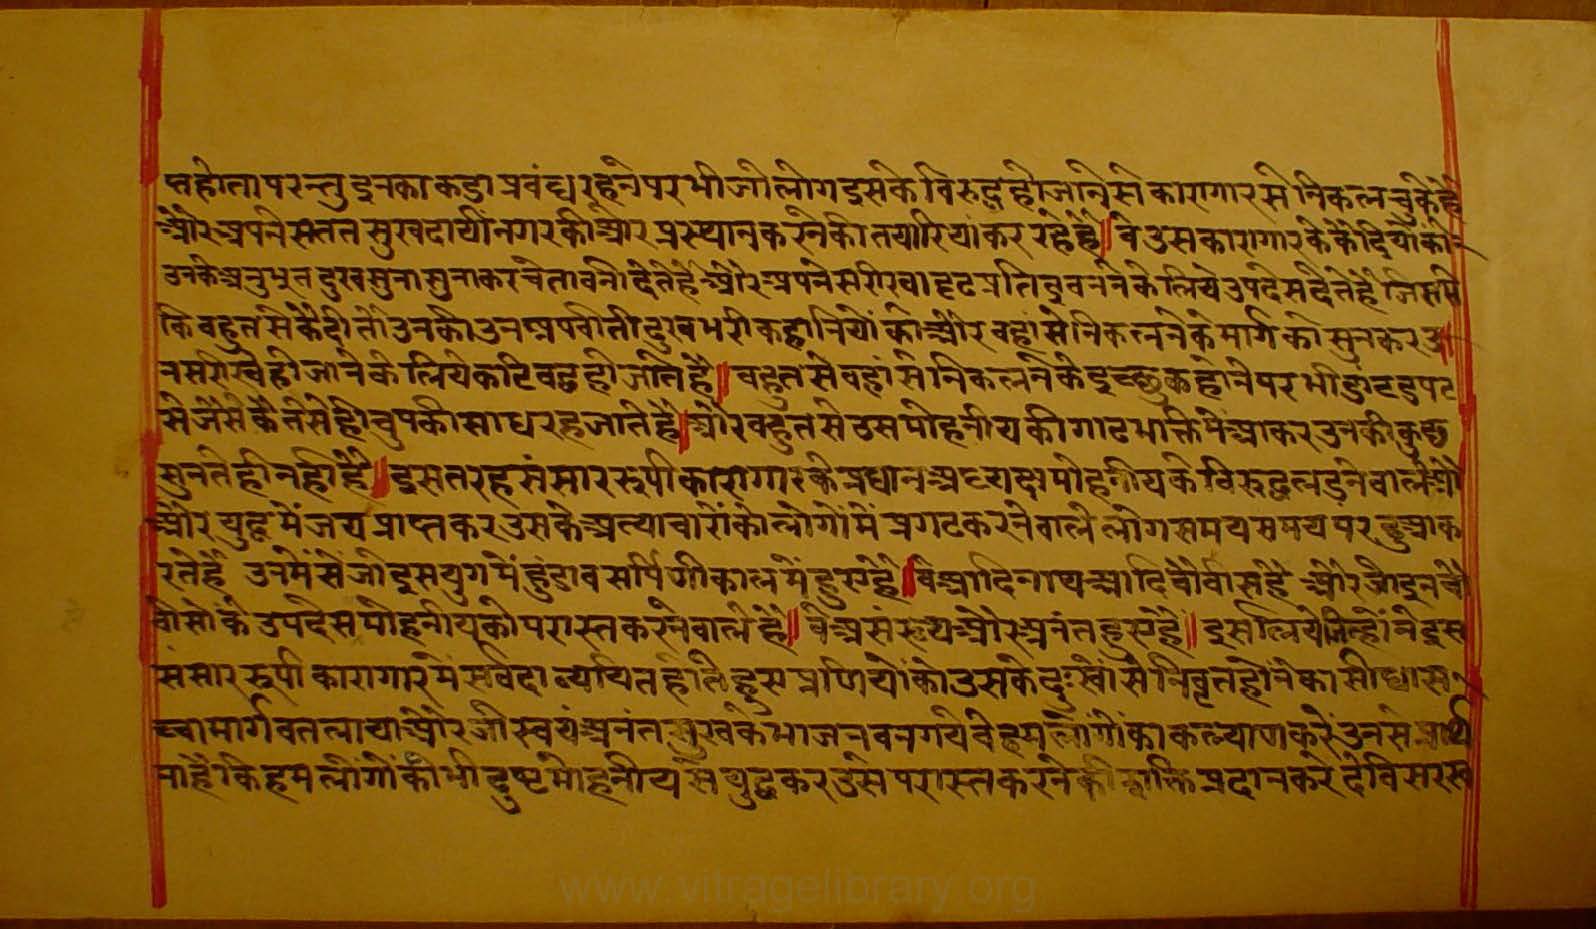 प्तहोतापरन्तु इनका कडा प्रवंद्य रहनेपर भी जो लोग इसके विरुद्ध हो जाने से कारागार से निकल चुके हैं
और अपने सतत सुखदायी नगर की ओर प्रस्थान करने की तयारियां कर रहे हैं॥ वे उस कारागार के कैदियों को
उनके अनुभूत दुख सुना सुनाकर चेतावनी देते हैं और अपने सरीखा दृढ प्रतिज्ञ बनने के लिये उपदेस देते हैं जिससे
कि वहुत से कैदी तो उनकी उन आपवीती दुख भरी कहानियों को और वहां से निकलने के मार्ग को सुनकर उ
न सरीखे ही जाने के लिये कटिवद्ध हो जाते हैं॥ वहुत से वहां से निकलने के इच्छुक होने पर भी डांट डपट
से जैसे के तैसे ही चुपकी साध रह जाते हैं॥ और वहुत से उस मोहनीय की गाढ भक्ति में आकर उनकी कुछ
सुनते ही नहीं हैं॥ इस तरह संसार रूपी कारागार के प्रधान अध्यक्ष मोहनीय के विरुद्ध लडने वाले
और युद्ध में जय प्राप्त कर उसके अत्याचारों को लोगों में प्रगट करने वाले लोग समय समय पर हुआ क
रते हैं उनमें से जो इस युग में हुंडावसर्पिणी काल में हुए हैं॥ वे आदिनाथ आदि चौवीस हैं और जो इन चौ
वीसों के उपदेस मोहनीय को परास्त करने वाले हैं॥ वे असंख्य और अनंत हुए हैं॥ इसलिये जिन्होंने इस
संसार रूपी कारागार में सर्वदा व्यथित होते हुए प्राणियों को उसके दुःखों से निवृत होने का सीधा स
च्चा मार्ग वतलाया और जो स्वयं अनंत सुख के भाजन वन गये वे हम लोगों का कल्याण करें उनसे प्रार्थ
ना है कि हम लोगों को भी दुष्ट मोहनीय से युद्ध कर उसे परास्त करने की शक्ति प्रदान करे देवि सरस्व
www.vitragelibrary.org